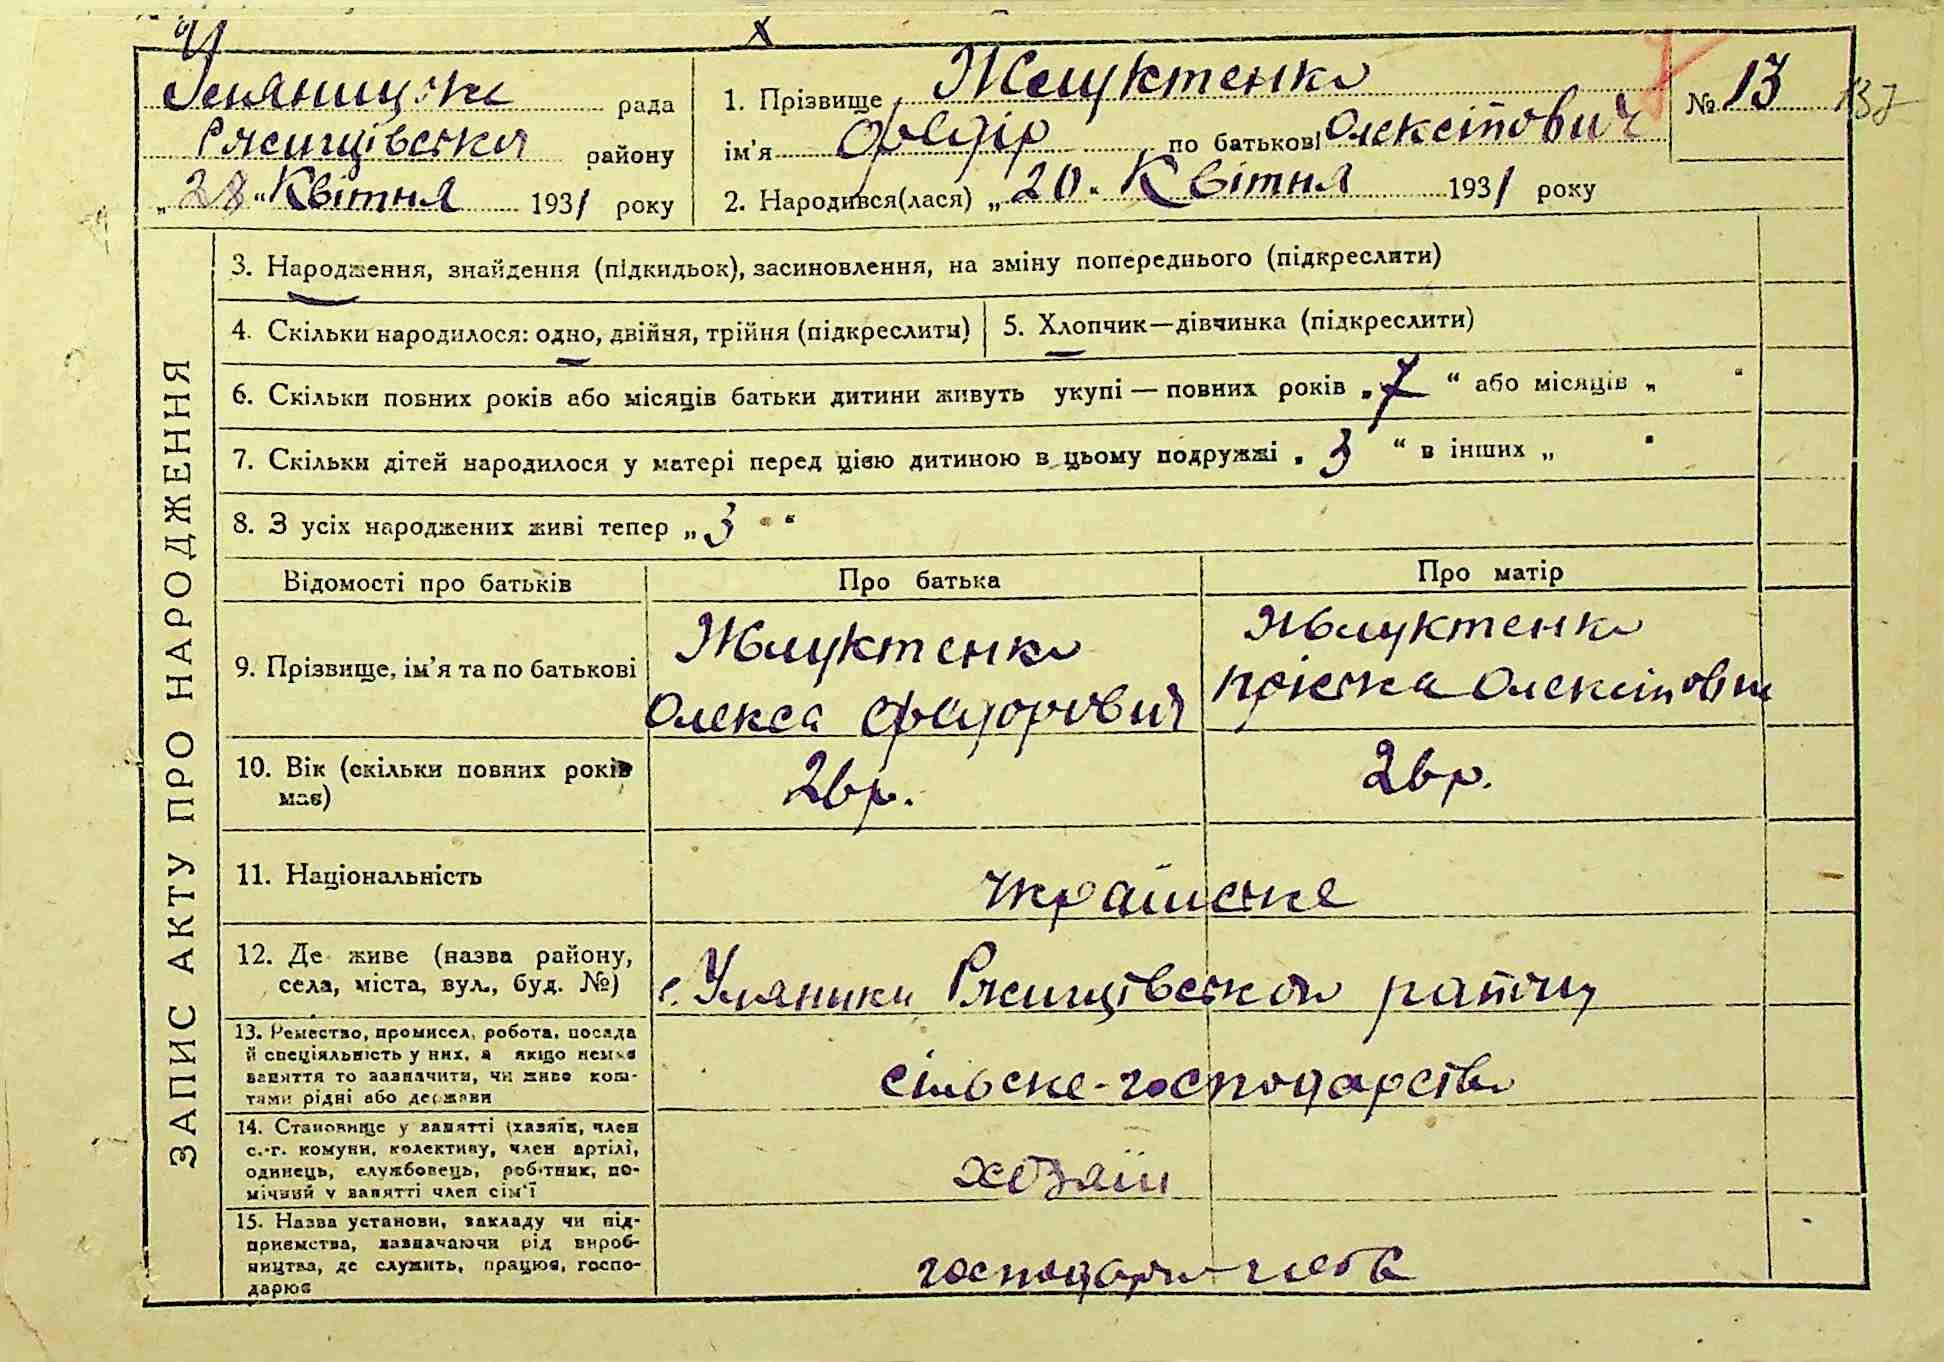 Уляницька рада
Ржищівська району
„28“ Квітня 1931 року
1. Прізвище Жлуктенко
ім'я Федір по батькові Олексійович
2. Народився(лася) „20“ Квітня 1931 року
№ 13
137
ЗАПИС АКТУ ПРО НАРОДЖЕННЯ
3. Народження, знайдення (підкидьок), засиновлення, на зміну попереднього (підкреслити)
4. Скільки народилося: одно, двійня, трійня (підкреслити)
5. Хлопчик—дівчинка (підкреслити)
6. Скільки повних років або місяців батьки дитини живуть укупі — повних років „7“ або місяців „ “
7. Скільки дітей народилося у матері перед цією дитиною в цьому подружжі „3“ в інших „ “
8. З усіх народжених живі тепер „3“
Відомості про батьків
Про батька
Про матір
9. Прізвище, ім'я та по батькові
Жлуктенко
Олекса Федорович
Жлуктенко
Пріська Олексіївна
10. Вік (скільки повних років
має)
26 р.
26 р.
11. Національність
українське
12. Де живе (назва району,
села, міста, вул., буд. №)
с. Уляники Ржищівського району
13. Ремество, промисел, робота, посада
й спеціяльність у них, а якщо немає
заняття то зазначити, чи живе кош-
тами рідні або держави
сільске-господарство
14. Становище у занятті (хазяїн, член
с.-г. комуни, колективу, член артілі,
одинець, службовець, робітник, по-
мічний у занятті член сім'ї
хозяїн
15. Назва установи, закладу чи під-
приємства, зазначаючи рід вироб-
ництва, де служить, працює, госпо-
дарює